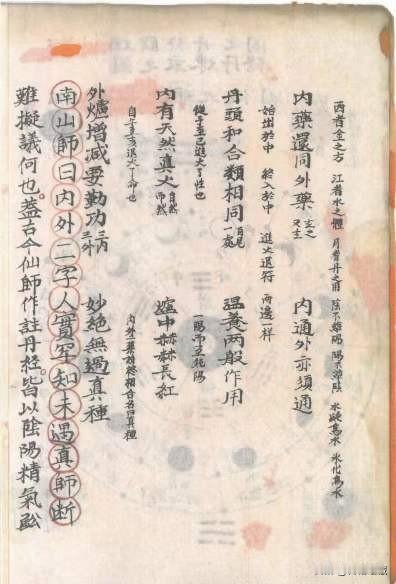 西者金之方 江者水之體 月者丹之用 陰不離陽 陽不離陰 水凝為冰 氷化為水
內藥還同外藥 內通外亦須通
始出於中 終入於中 進火退符 兩邊一樣
丹頭和合類相同 溫養兩般作用
從子至巳進火了性也 一陽而至純陽
內有天然真火 自然而然 爐中赫赫長紅
自午至亥退火了命也 內外二藥 相合名曰真種
外爐增減要勤功 三內三外 妙絕無過真種
南山師曰內外二字人實罕知未遇真師斷
難擬議何也蓋古今仙師作註丹經皆以陰陽精氣